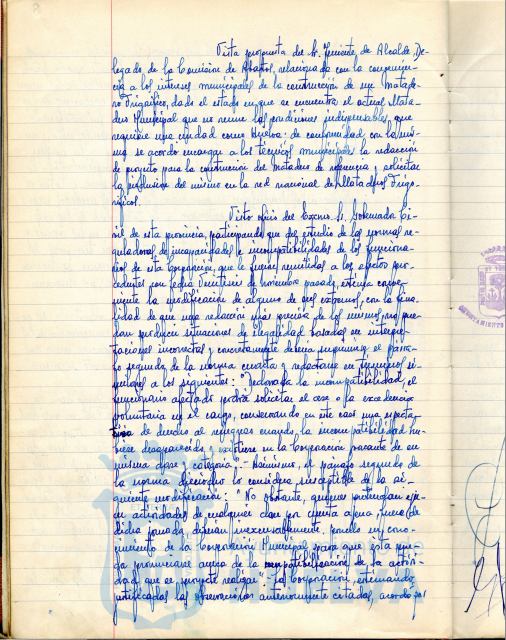 Vista propuesta del Sr. Teniente de Alcalde, De-
legado de la Comisión de Abastos, relacionada con la convenien-
cia a los intereses municipales de la construcción de un Matade-
ro Frigorífico, dado el estado en que se encuentra el actual Mata-
dero Municipal que no reune las condiciones indispensables que
requiere una ciudad como Huelva: de conformidad con la mis-
ma se acordó encargar a los técnicos municipales la redacción
de proyecto para la construcción del Matadero de referencia y solicitar
la inclusión del mismo en la red nacional de Mataderos Frigo-
ríficos.
Visto oficio del Excmo. Sr. Gobernador Ci-
vil de esta provincia, participando que del estudio de las normas re-
guladoras de incapacidades e incompatibilidades de los funciona-
rios de esta Corporación, que le fueron remitidas a los efectos pro-
cedentes con fecha diecisiete de noviembre pasado, estima conve-
niente la modificación de algunos de sus extremos, con la fina-
lidad de que una redacción más precisa de los mismos, no pue-
dan producir situaciones de ilegalidad basadas en interpre-
taciones incorrectas y concretamente debería suprimirse el párra-
fo segundo de la norma cuarta y redactarse en términos si-
milares a los siguientes: "Declarada la incompatibilidad, el
funcionario afectado podrá solicitar el cese o la excedencia
voluntaria en el cargo, conservando en este caso una expecta-
tiva de derecho al reingreso cuando la incompatibilidad hu-
biere desaparecido y existiere en la Corporación vacante de su
misma clase y categoría".- Asimismo, el párrafo segundo de
la norma dieciocho lo considera susceptible de la si-
guiente modificación: "No obstante, quienes pretendan ejer-
cer actividades de cualquier clase por cuenta ajena fuera de
dicha jornada, deberán inexcusablemente ponerlo en cono-
cimiento de la Corporación Municipal para que ésta pue-
da pronunciarse acerca de la compatibilización de la activi-
dad que se proyecte realizar".- La Corporación, estimando
justificadas las observaciones anteriormente citadas, acordó por